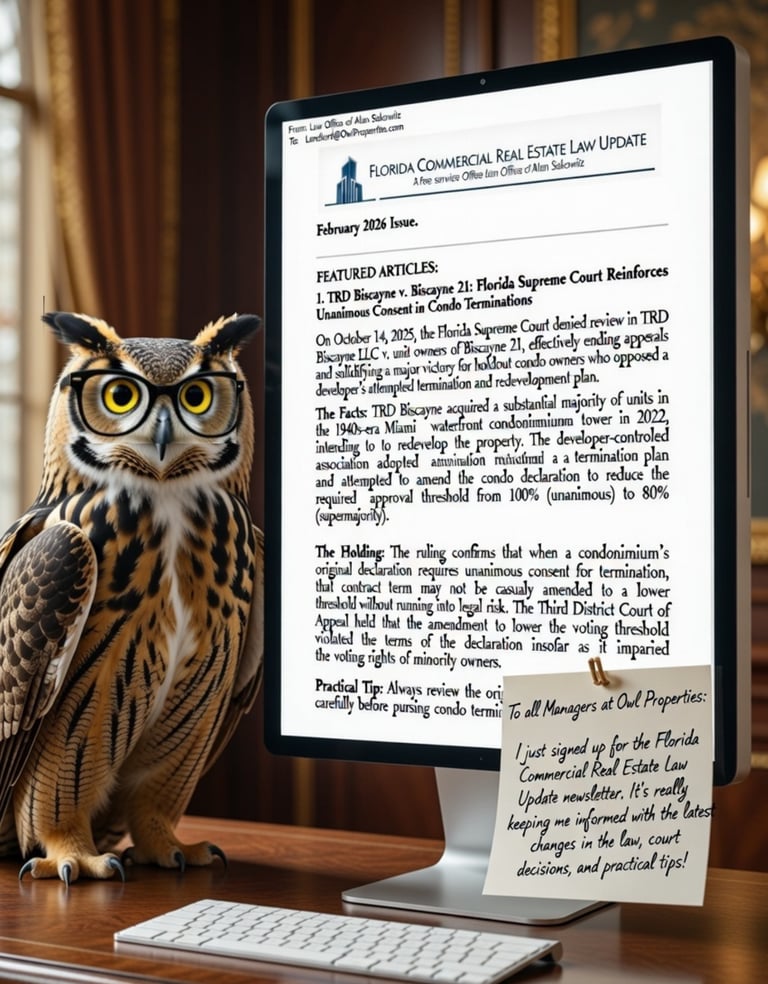 From: Law Office of Alan Sakowitz
To: Landlord@OwlProperties.com
FLORIDA COMMERCIAL REAL ESTATE LAW UPDATE
A Free service Office Law Office of Alan Sakowitz
February 2026 Issue.
FEATURED ARTICLES:
1. TRD Biscayne v. Biscayne 21: Florida Supreme Court Reinforces
Unanimous Consent in Condo Terminations
On October 14, 2025, the Florida Supreme Court denied review in TRD
Biscayne LLC v. unit owners of Biscayne 21, effectively ending appeals
and solidifying a major victory for holdout condo owners who opposed a
developer's attempted termination and redevelopment plan.
The Facts: TRD Biscayne acquired a substantial majority of units in
the 1940s-era Miami waterfront condominimium tower in 2022,
intending to to redevelop the property. The developer-controled
association adopted a a termination plan
and attempted to amend the condo declaration to reduce the
required approval threshold from 100% (unanimous) to 80%
(supermajority).
The Holding: The ruling confirms that when a condominimium's
original declaration requires unanimous consent for termination,
that contract term may not be casualy amended to a lower
threshold without running into legal risk. The Third District Court of
Appeal held that the amendment to lower the voting threshold
violated the terms of the declaration insofar as it imparied
the voting rights of minority owners.
Practical Tip: Always review the ori
carefully before pursing condo termin
To all Managers at Owl Properties:
I just signed up for the Florida
Commercial Real Estate Law
Update newsletter. It's really
keeping me informed with the latest
changes in the law, court
decisions, and practical tips!